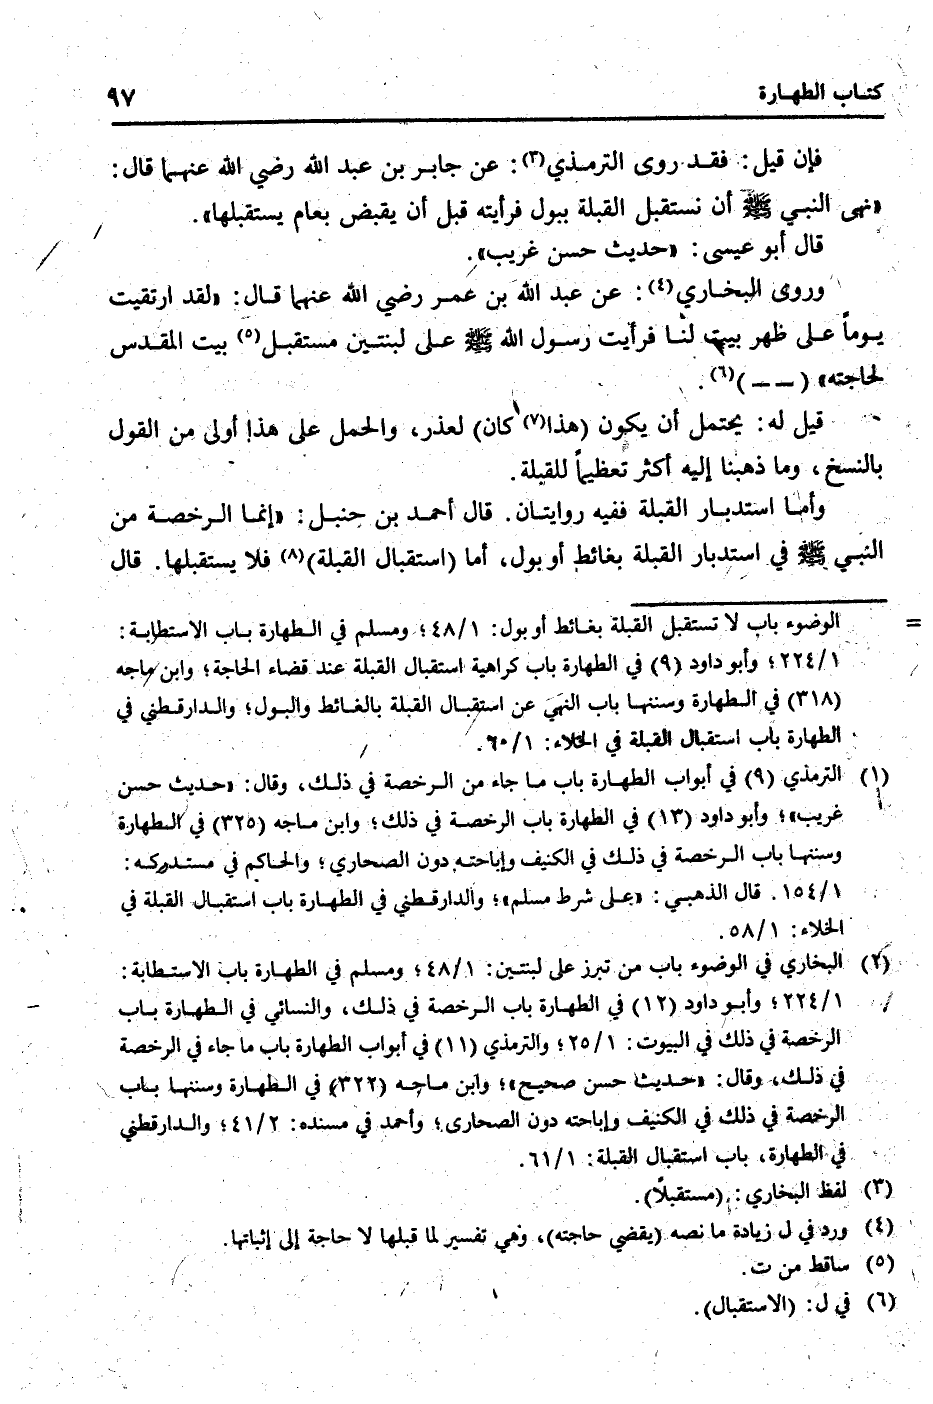 كتاب الطهارة ٩٧
فإن قيل: فقد روى الترمذي(٣): عن جابر بن عبد الله رضي الله عنهما قال:
«نهى النبي ﷺ أن نستقبل القبلة ببول فرأيته قبل أن يقبض بعام يستقبلها».
قال أبو عيسى: «حديث حسن غريب».
وروى البخاري(٤): عن عبد الله بن عمر رضي الله عنهما قال: «لقد ارتقيت
يوماً على ظهر بيت لنا فرأيت رسول الله ﷺ على لبنتين مستقبل(٥) بيت المقدس
لحاجته» (ــ ــ)(٦).
قيل له: يحتمل أن يكون (هذا(٧) كان) لعذر، والحمل على هذا أولى من القول
بالنسخ، وما ذهبنا إليه أكثر تعظيماً للقبلة.
وأما استدبار القبلة ففيه روايتان. قال أحمد بن حنبل: «إنما الرخصة من
النبي ﷺ في استدبار القبلة بغائط أو بول، أما (استقبال القبلة)(٨) فلا يستقبلها. قال
= الوضوء باب لا تستقبل القبلة بغائط أو بول: ٤٨/١؛ ومسلم في الطهارة باب الاستطابة:
٢٢٤/١؛ وأبو داود (٩) في الطهارة باب كراهية استقبال القبلة عند قضاء الحاجة؛ وابن ماجه
(٣١٨) في الطهارة وسننها باب النهي عن استقبال القبلة بالغائط والبول؛ والدارقطني في
الطهارة باب استقبال القبلة في الخلاء: ٦٠/١.
(١) الترمذي (٩) في أبواب الطهارة باب ما جاء من الرخصة في ذلك، وقال: «حديث حسن
غريب»؛ وأبو داود (١٣) في الطهارة باب الرخصة في ذلك؛ وابن ماجه (٣٢٥) في الطهارة
وسننها باب الرخصة في ذلك في الكنيف وإباحته دون الصحاري؛ والحاكم في مستدركه:
١٥٤/١. قال الذهبي: «على شرط مسلم»؛ والدارقطني في الطهارة باب استقبال القبلة في
الخلاء: ٥٨/١.
(٢) البخاري في الوضوء باب من تبرز على لبنتين: ٤٨/١؛ ومسلم في الطهارة باب الاستطابة:
٢٢٤/١؛ وأبو داود (١٢) في الطهارة باب الرخصة في ذلك، والنسائي في الطهارة باب
الرخصة في ذلك في البيوت: ٢٥/١؛ والترمذي (١١) في أبواب الطهارة باب ما جاء في الرخصة
في ذلك، وقال: «حديث حسن صحيح»؛ وابن ماجه (٣٢٢) في الطهارة وسننها باب
الرخصة في ذلك في الكنيف وإباحته دون الصحارى؛ وأحمد في مسنده: ٤١/٢؛ والدارقطني
في الطهارة، باب استقبال القبلة: ٦١/١.
(٣) لفظ البخاري: (مستقبلاً).
(٤) ورد في ل زيادة ما نصه (يقضي حاجته)، وهي تفسير لما قبلها لا حاجة إلى إثباتها.
(٥) ساقط من ت.
(٦) في ل: (الاستقبال).